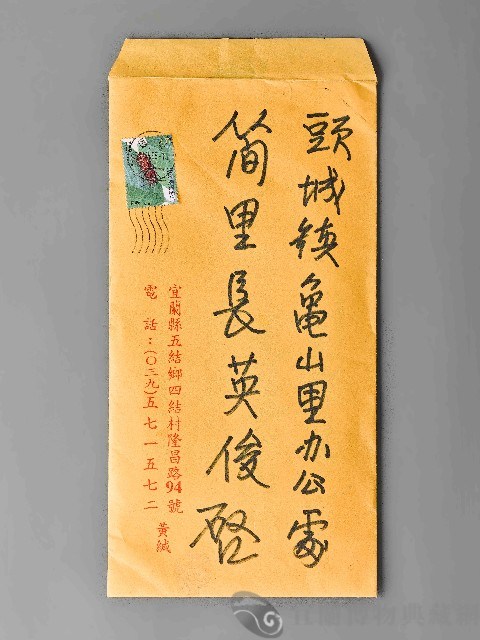 頭城鎮龜山里办公處
簡里長英俊啓
宜蘭縣五結鄉四結村隆昌路94號
電話：(〇三九)五七一五七二
黃緘